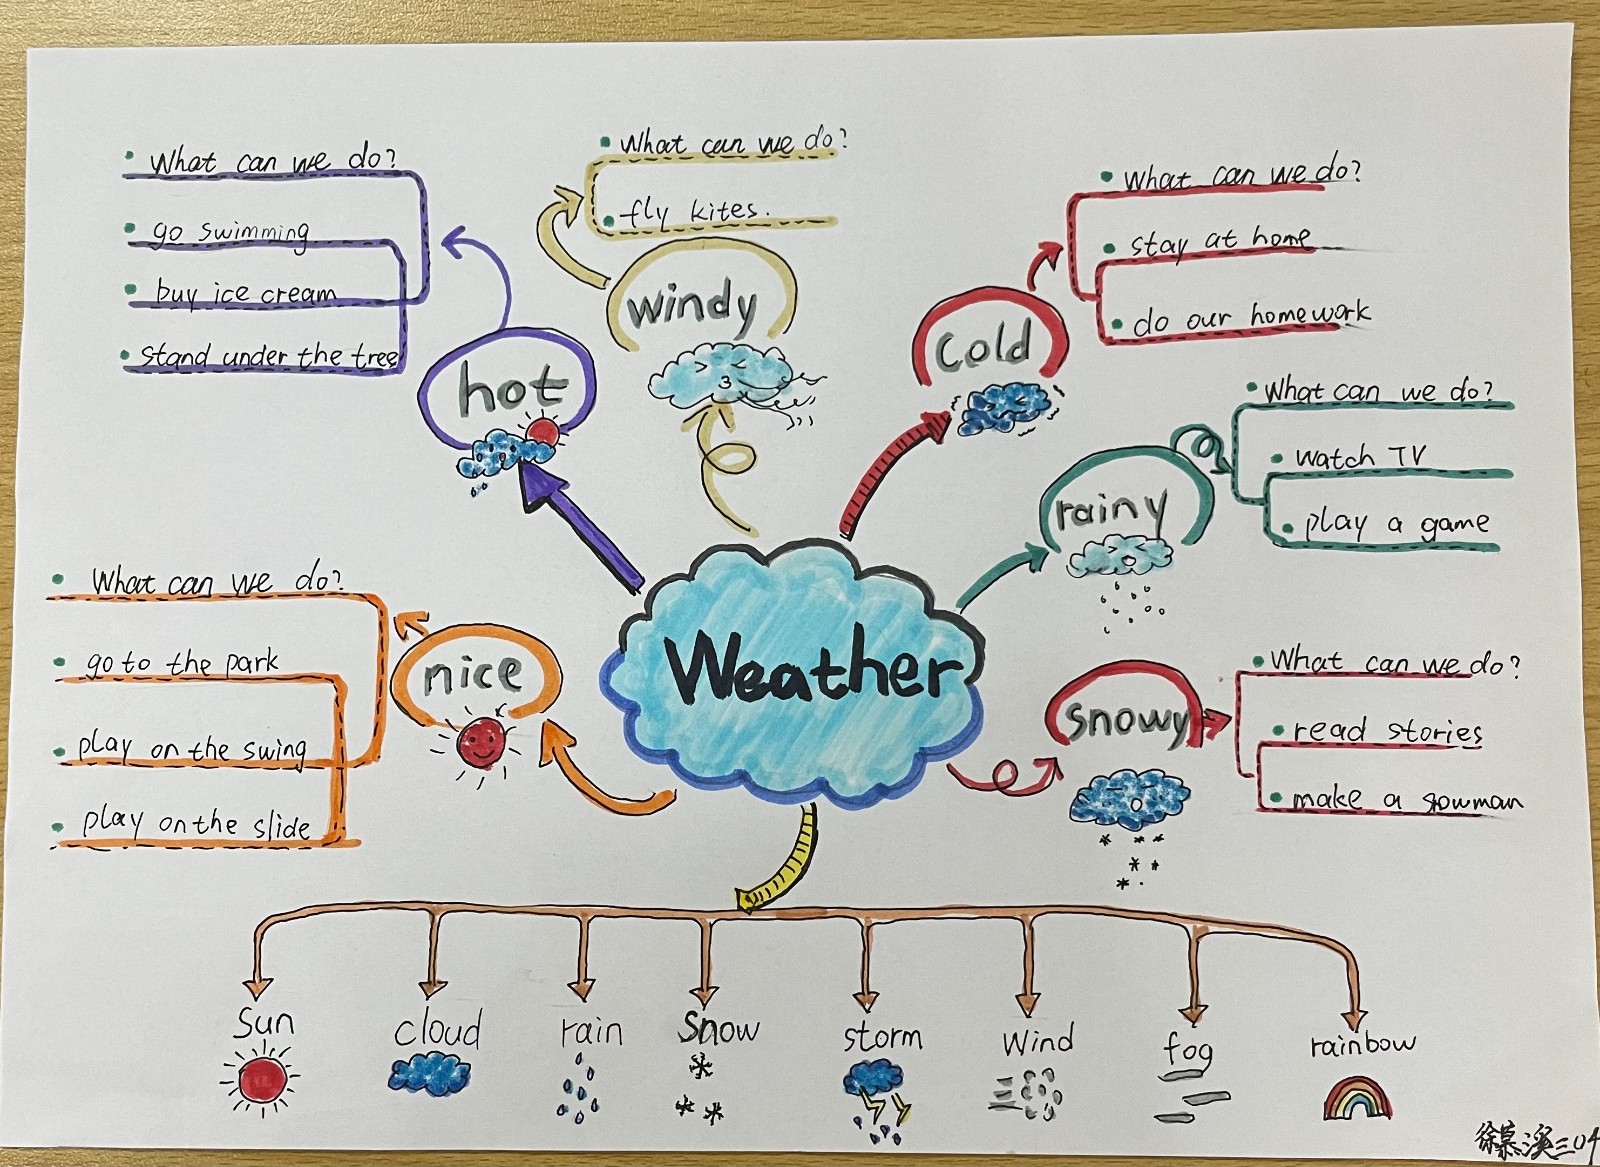 What can we do?
go swimming
buy ice cream
stand under the tree
hot
What can we do?
fly kites.
windy
What can we do?
stay at home
do our homework
cold
What can we do?
watch TV
play a game
rainy
What can we do?
go to the park
play on the swing
play on the slide
nice
Weather
What can we do?
read stories
make a sowman
snowy
Sun
cloud
rain
Snow
storm
Wind
fog
rainbow
徐慕溪三04